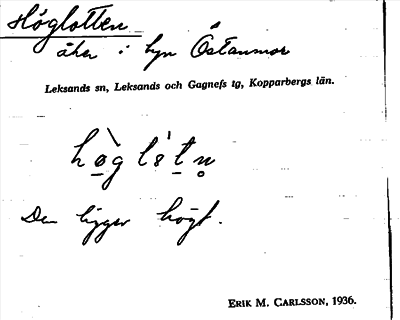 Höglotten
åker i byn Östanmor
Leksands sn, Leksands och Gagnefs tg, Kopparbergs län.
Den ligger högt.
ERIK M. CARLSSON, 1936.